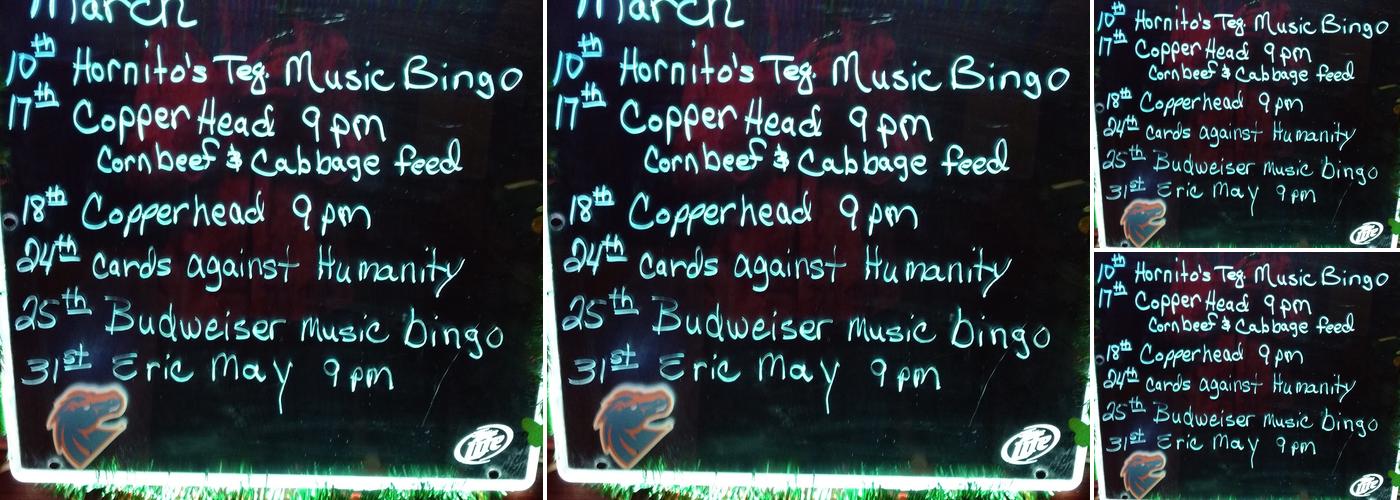 March
10th Hornito's Teq. Music Bingo
17th Copper Head 9pm
Cornbeef & Cabbage feed
18th Copperhead 9pm
24th cards against Humanity
25th Budweiser music bingo
31st Eric May 9pm
Lite
March
10th Hornito's Teq. Music Bingo
17th Copper Head 9pm
Cornbeef & Cabbage feed
18th Copperhead 9pm
24th cards against Humanity
25th Budweiser music bingo
31st Eric May 9pm
Lite
10th Hornito's Teq. Music Bingo
17th Copper Head 9pm
Cornbeef & Cabbage feed
18th Copperhead 9pm
24th cards against Humanity
25th Budweiser music bingo
31st Eric May 9pm
Lite
10th Hornito's Teq. Music Bingo
17th Copper Head 9pm
Cornbeef & Cabbage feed
18th Copperhead 9pm
24th cards against Humanity
25th Budweiser music bingo
31st Eric May 9pm
Lite